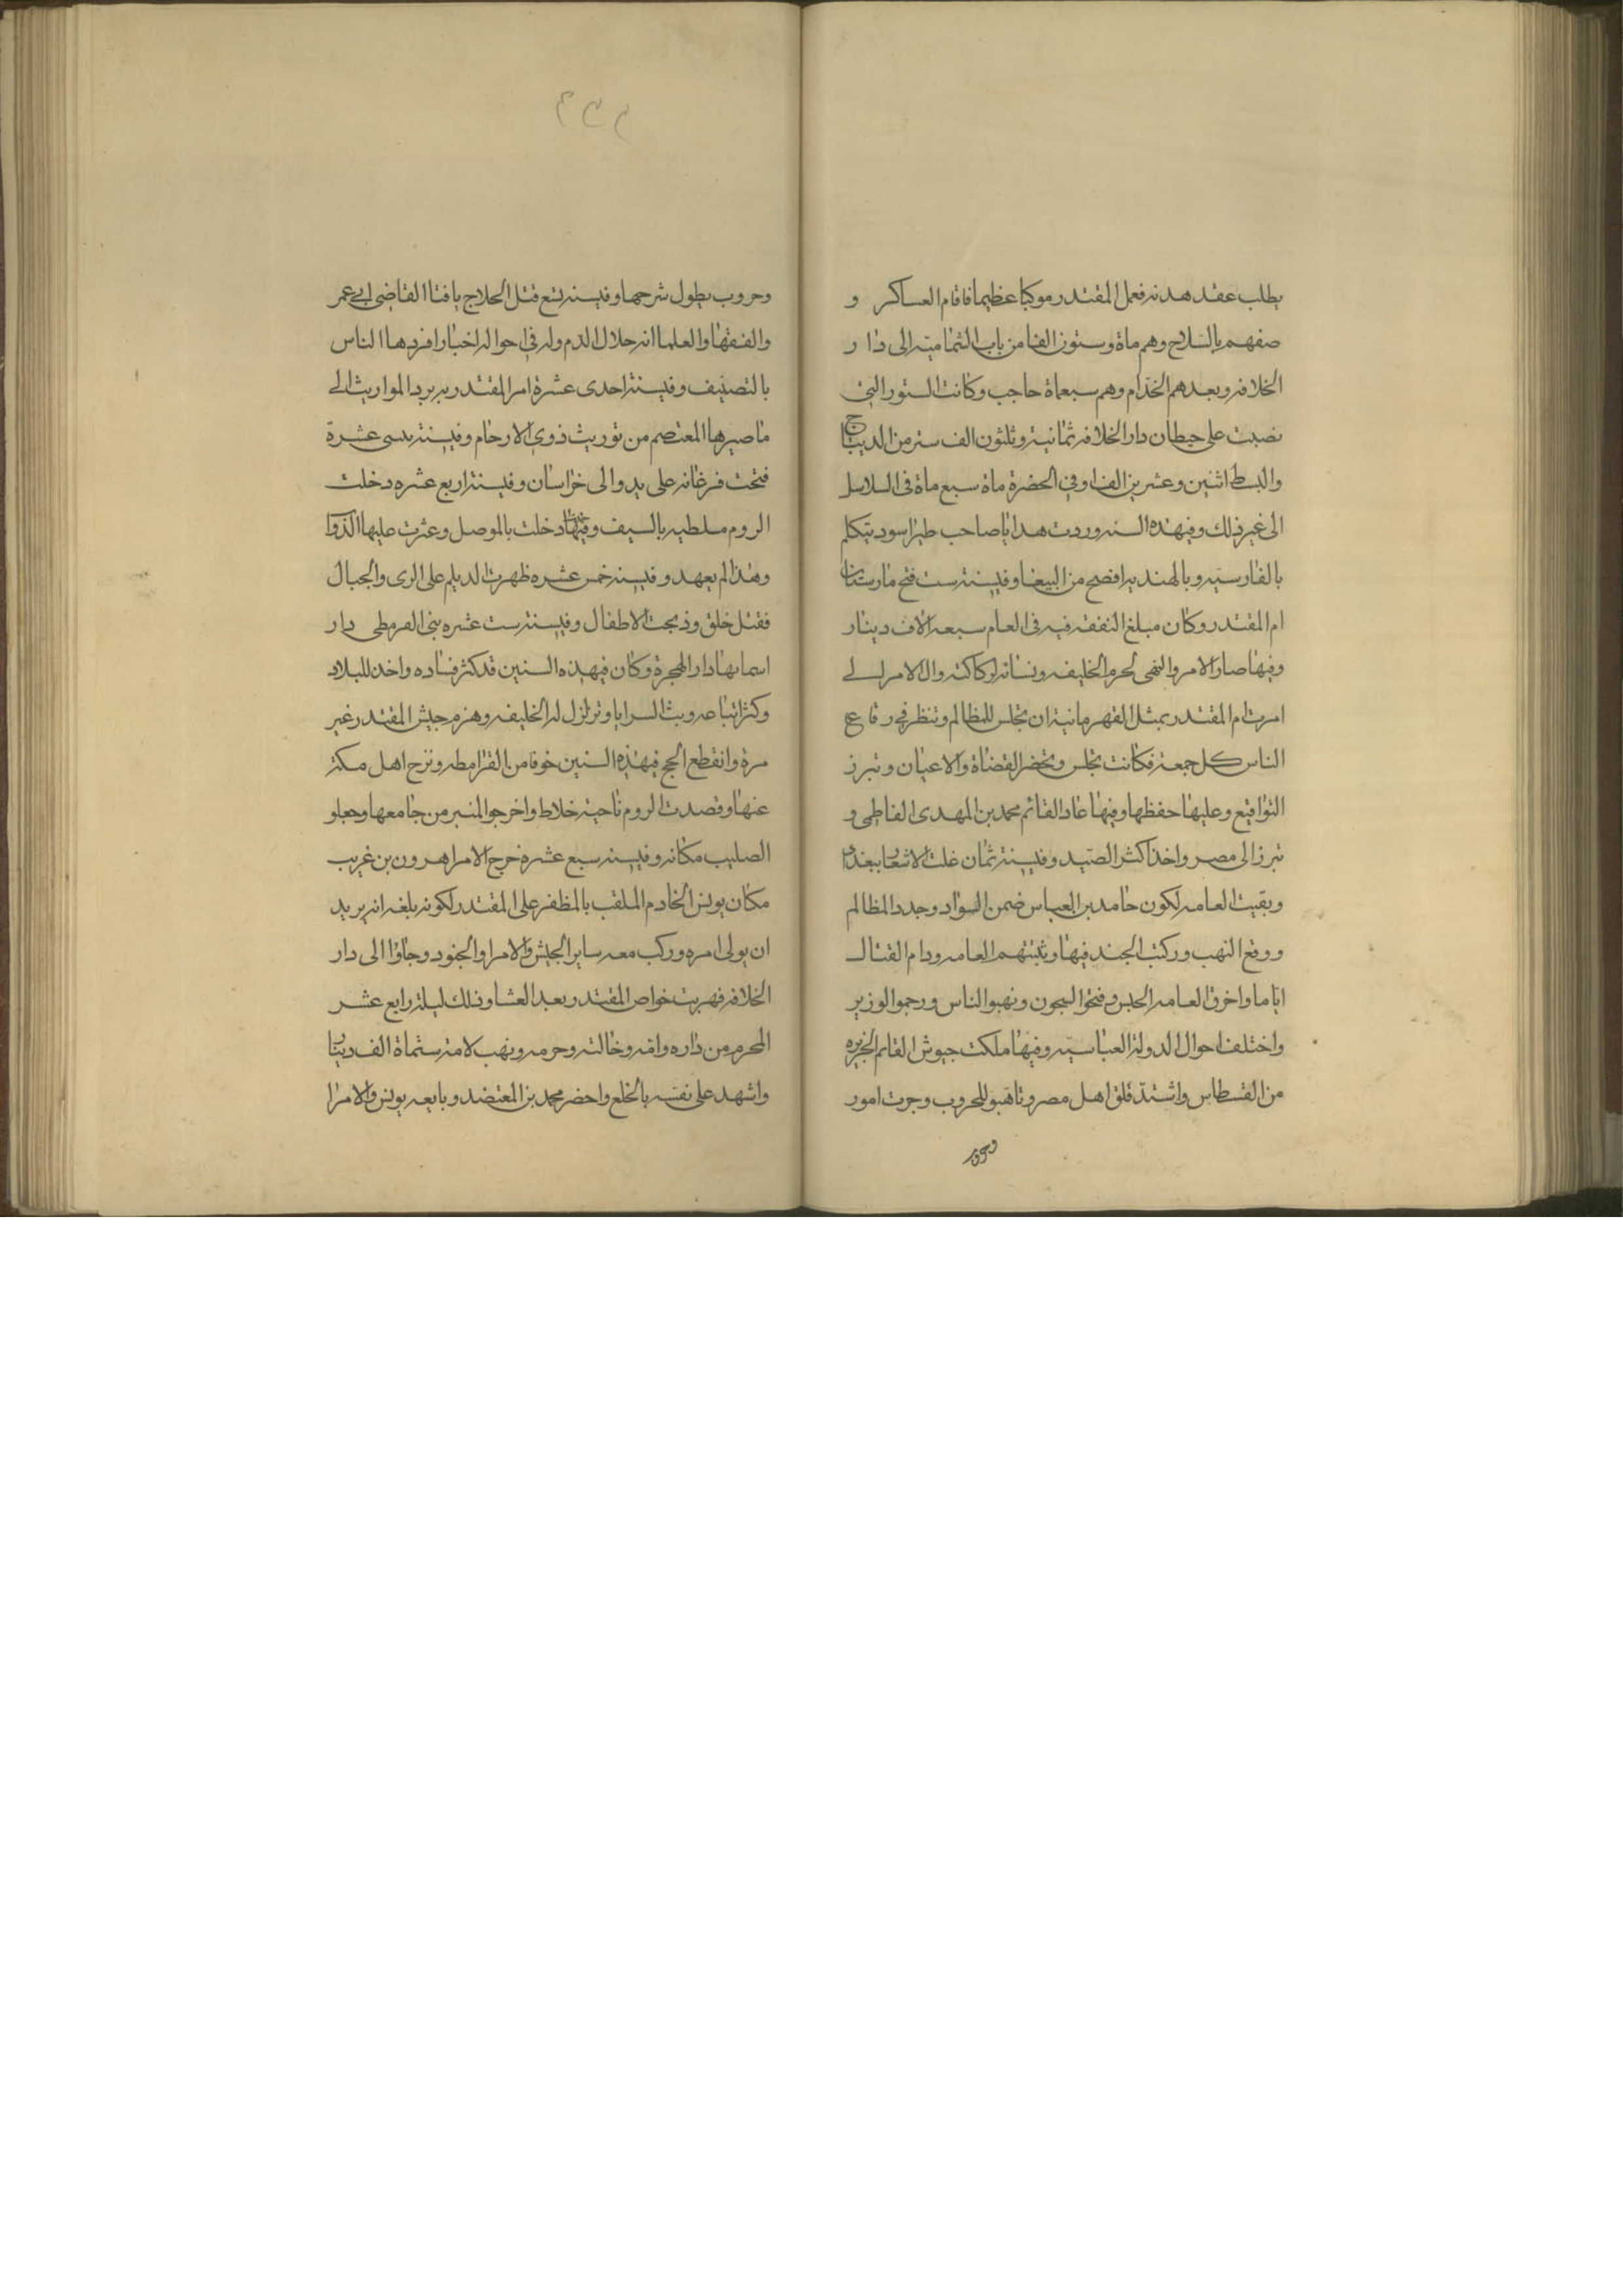 يطلب عقد هدنه فعمل المقتدر موكبا عظيما فاقام العساكر و
صفهم بالسلاح وهم ماة وستون الفا من باب الشماميه الى دار
الخلافه وبعدهم الخدام وهم سبعماة حاجب وكانت الستور التى
نصبت على حيطان دار الخلافه ثمانية وثلثون الف ستر من الديباج
والبسط اثنين وعشرين الفا وفى الحضرة ماة سبع ماة فى السلاسل
الى غير ذلك وفى هذه السنه وردت هدايا صاحب طيرا سود يتكلم
بالفارسيه وبالهنديه افصح من الببغا وفى سنة ست فتح مارستان
ام المقتدر وكان مبلغ النفقه فيه فى العام سبعه الاف دينار
وفيها صار الامر والنهى لحرم الخليفه ونسائه لركاكته وال الامر الى
امرت ام المقتدر بمثل القهرمانية ان تجلس للمظالم وتنظر فى رقاع
الناس كل جمعة فكانت تجلس وتحضر القضاة والاعيان وتبرز
التواقيع وعليها حفظها وفيها عاد القائم محمد بن المهدى الفاطمى و
تبرز الى مصر واخذ اكثر الصيد وفى سنة ثمان غلت الاسعار ببغداد
وبقيت العامه لكون حامد بن العباس ضمن السواد وجدد المظالم
ووقع النهب وركبت الجند فيها وشتتهم العامه ودام القتال
اياما واخرق العامه الحبس وفتحوا السجون ونهبوا الناس ورجموا الوزير
واختلف احوال الدولة العباسيه وفيها ملكت جيوش القائم الجزيره
من الفسطاس واشتد قلق اهل مصر وتاهبو للحروب وجرت امور
وحروب
وحروب يطول شرحها وفى سنه تسع قتل الحلاج بافتا القاضى ابى عمر
والفقها والعلما انه حلال الدم وله فى احواله اخبار افردها الناس
بالتصنيف وفى سنة احدى عشرة امر المقتدر برد المواريث الى
ما صيرها المعتصم من توريث ذوى الارحام وفى سنة بسى عشرة
فتحت فرغانه على يد والى خراسان وفى سنة اربع عشره دخلت
الروم ملطيه بالسيف وفيها دخلت بالموصل وعثرت عليها الدواب
وهذا لم يعهد وفى سنه خمس عشره ظهرت الديلم على الرى والجبال
فقتل خلق وذبحت الاطفال وفى سنة ست عشره بنى القرمطى دار
اسماها دار الهجرة وكان فى هذه السنين قد كثر فساده واخذ للبلاد
وكثر اتباعه وبث السرايا وتزلزل له الخليفه وهزم جيش المقتدر غير
مرة وانقطع الحج فى هذه السنين خوفا من القرامطه ونزح اهل مكة
عنها وقصدت الروم ناحية خلاط واخرجوا المنبر من جامعها وجعلو
الصليب مكانه وفى سنه سبع عشره خرج الامرا هرون بن غريب
مكان يونس الخادم الملقب بالمظفر على المقتدر لكونه بلغه انه يريد
ان يولى امره وركب معه ساير الجيش والامرا والجنود وجاوا الى دار
الخلافه فهربت خواص المقتدر وبعد العشا وذلك ليلة رابع عشر
المحرم من داره وامه وخالته وحرمه ونهب لامه ستماة الف دينار
واشهد على نفسه بالخلع واحضر محمد بن المعتضد وبايعه يونس والامرا